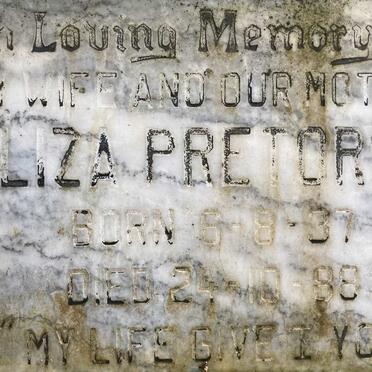 n Loving Memory
WIFE AND OUR MOT
LIZA PRETOR
BORN 6-8-37
DIED 24-10-88
"MY LIFE GIVE I YO